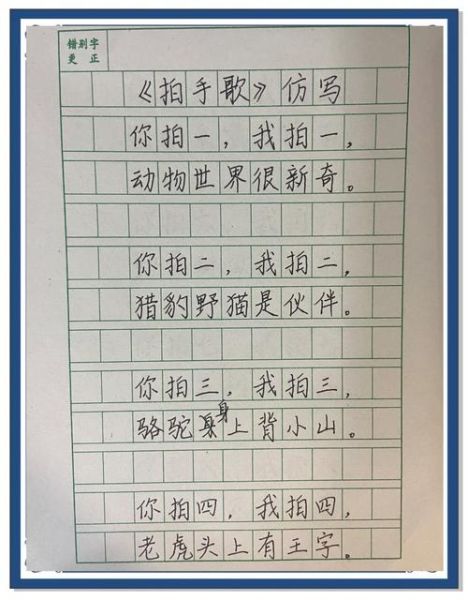 错别字
更 正
《拍手歌》仿写
你拍一，我拍一，
动物世界很新奇。
你拍二，我拍二，
猎豹野猫是伙伴。
你拍三，我拍三，
骆驼身上背小山。
你拍四，我拍四，
老虎头上有王字。